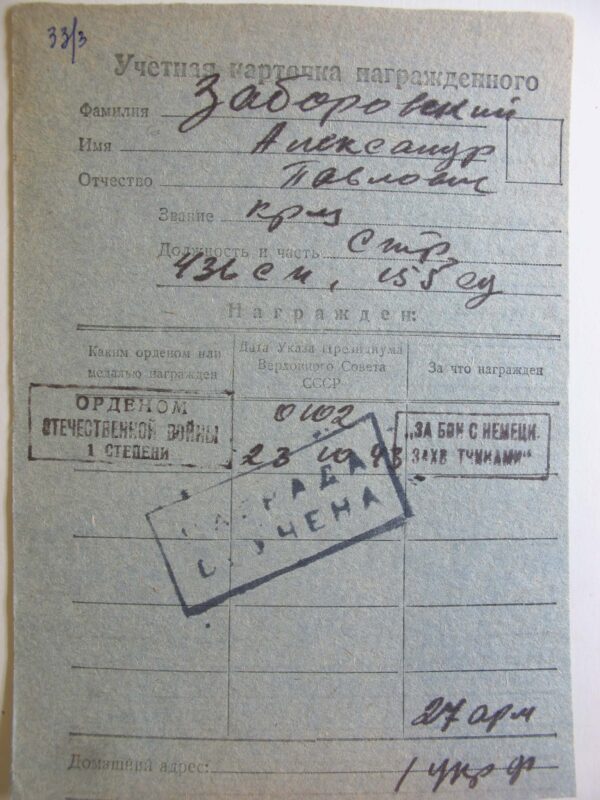 33/3
Учетная карточка награжденного
Фамилия Заборовский
Имя Александр
Отчество Павлович
Звание крц
Должность и часть стр
436 сп, 155 сд
Награжден:
Каким орденом или медалью награжден
Дата Указа Президиума Верховного Совета СССР
За что награжден
ОРДЕНОМ
ОТЕЧЕСТВЕННОЙ ВОЙНЫ
1 СТЕПЕНИ
0102
23 10 43
„ЗА БОИ С НЕМЕЦК.
ЗАХВ ТЧИКАМИ“
НАГРАДА
ВРУЧЕНА
27 арм
Домашний адрес:
1 укр ф